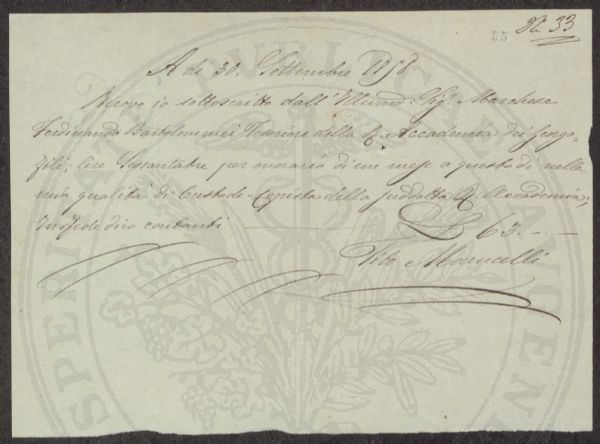 55
N. 33
A dì 30. Settembre 1858
Ricevo io sottoscritto dall' Illmo Sigr. Marchese
Ferdinando Bartolommei Tesoriere della R. Accademia dei Georgo-
fili, lire Sessantatre per onorario di un mese a questo dì nella
mia qualità di Custode-Copista della suddetta R. Accademia;
In contanti
L 63.-.-
Tito Marucelli